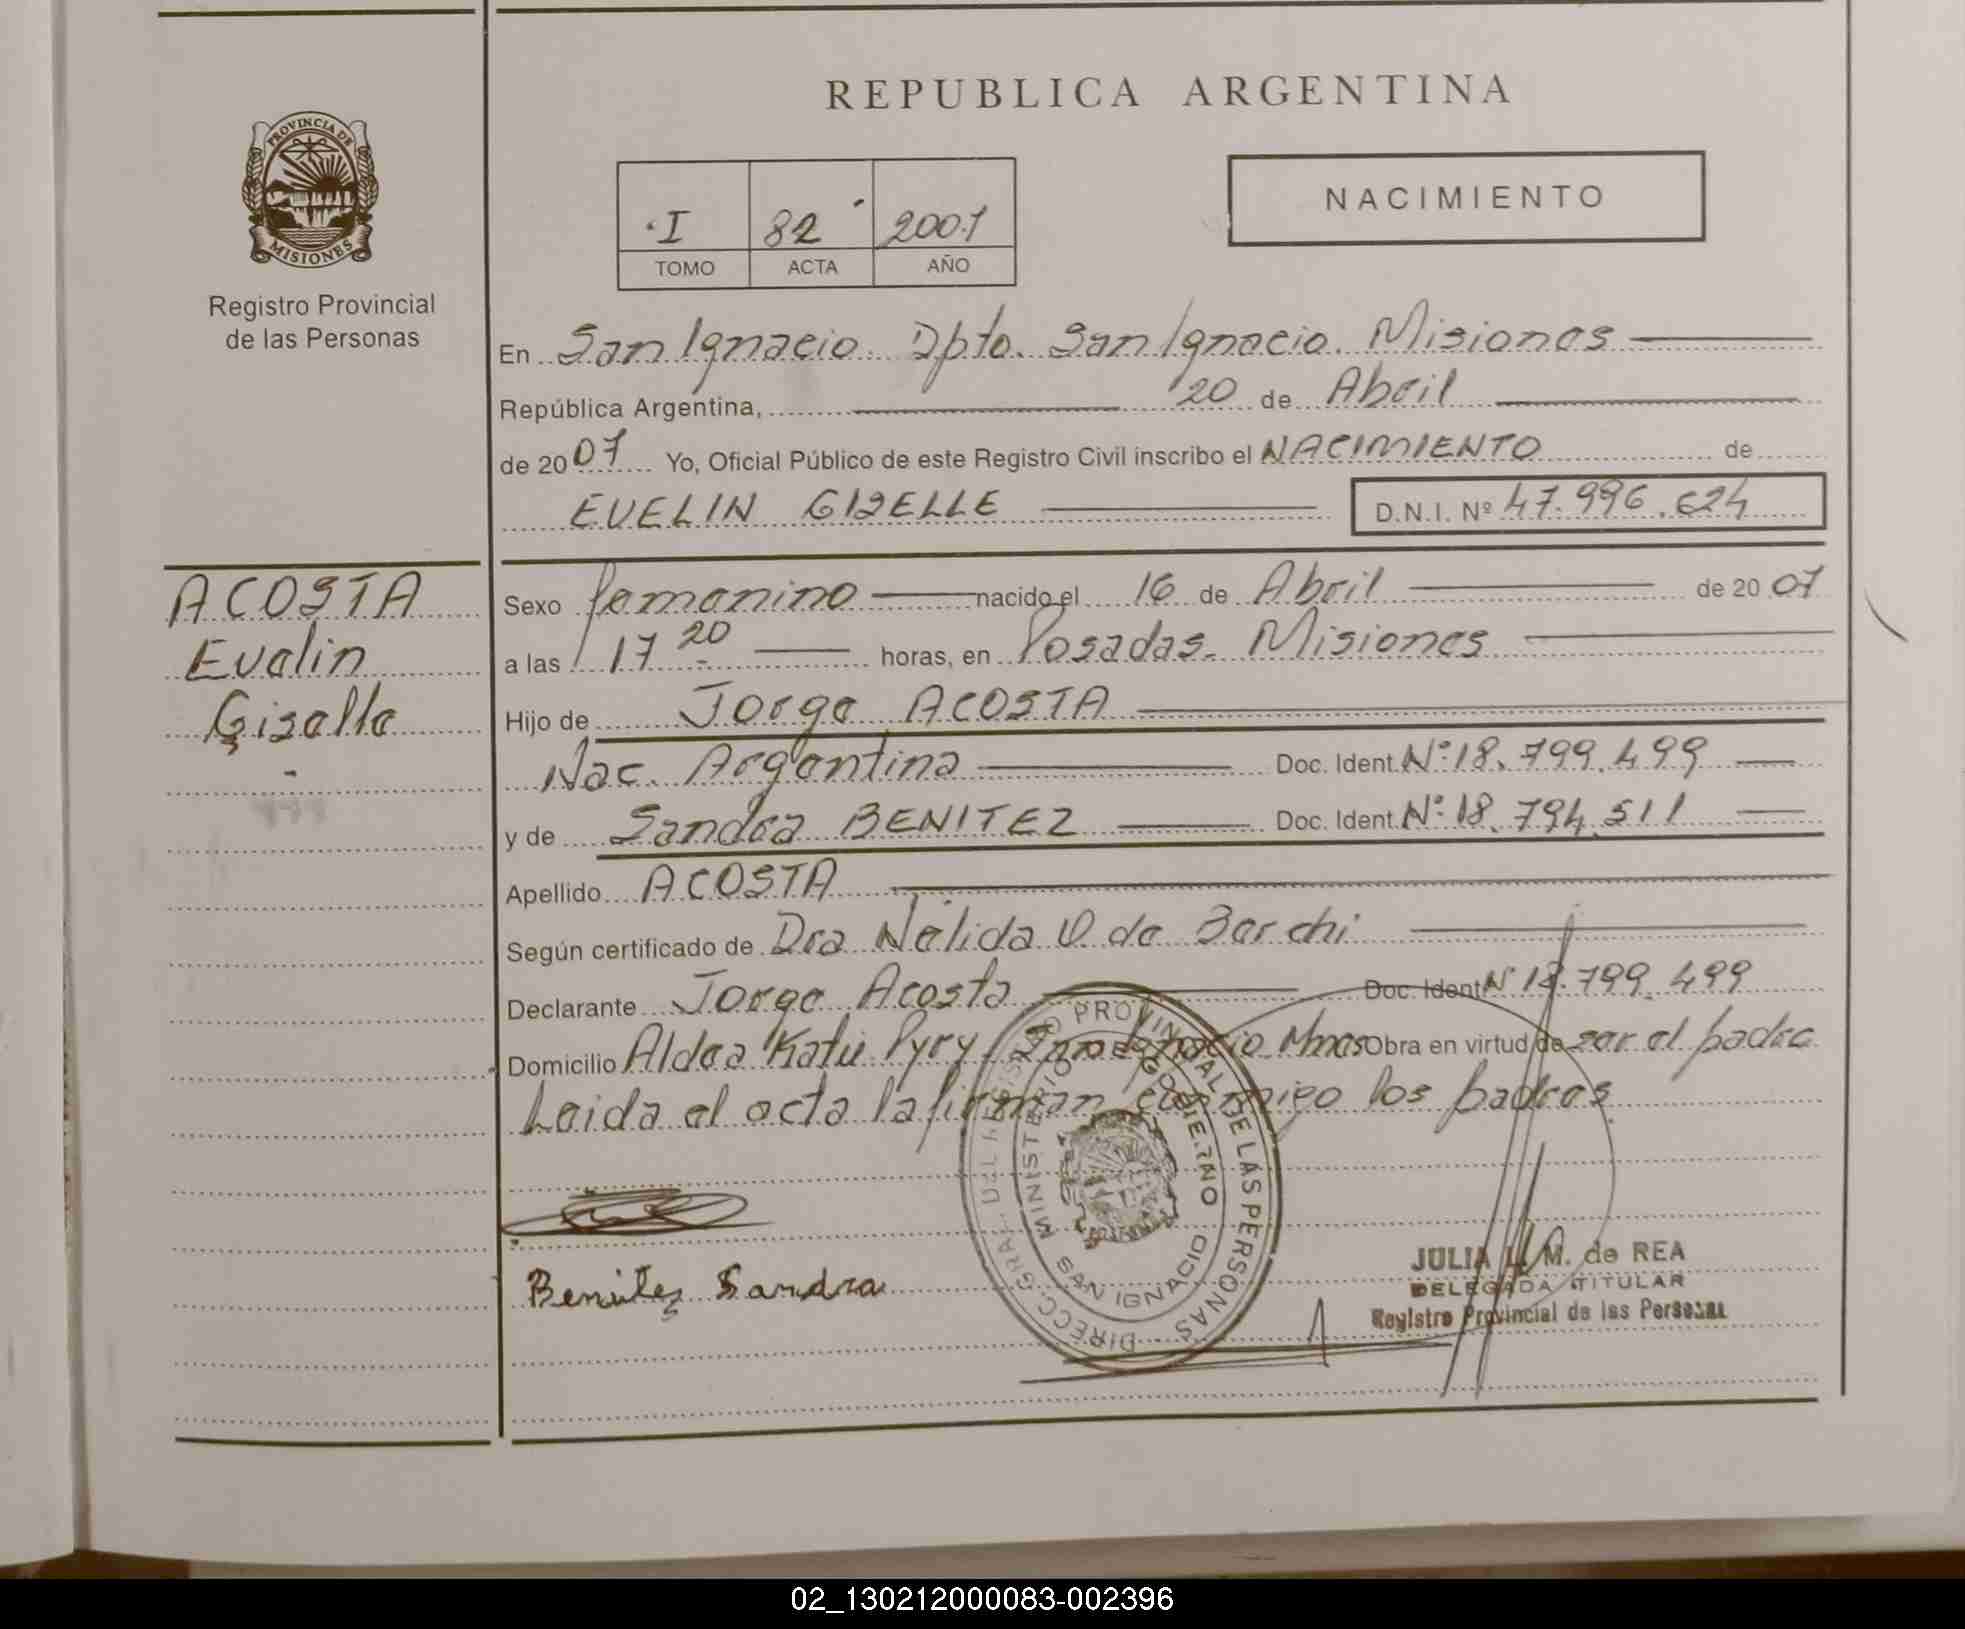 REPUBLICA ARGENTINA
PROVINCIA DE
MISIONES
Registro Provincial
de las Personas
I 82 2007
TOMO ACTA AÑO
NACIMIENTO
En San Ignacio. Dpto. San Ignacio. Misiones
República Argentina, 20 de Abril
de 2007 Yo, Oficial Público de este Registro Civil inscribo el NACIMIENTO de
EVELIN GISELLE D.N.I. Nº 47.996.624
ACOSTA
Evelin
Giselle
Sexo femenino nacido el 16 de Abril de 2007
a las 17 20 horas, en Posadas. Misiones
Hijo de Jorge ACOSTA
Nac. Argentina Doc. Ident. Nº 18.799.499
y de Sandra BENITEZ Doc. Ident. Nº 18.794.511
Apellido ACOSTA
Según certificado de Dra Nélida O de Barchi
Declarante Jorge Acosta Doc. Ident Nº 18.799.499
Domicilio Aldea Katú Pyry San Ignacio Mnes Obra en virtud de ser el padre
Leida el acta la firman conmigo los padres
Benitez Sandra
DIRECC. GRAL. DEL REGISTRO PROVINCIAL DE LAS PERSONAS
MINISTERIO DE GOBIERNO
SAN IGNACIO
JULIA M. de REA
DELEGADA TITULAR
Registro Provincial de las Personas
02_130212000083-002396